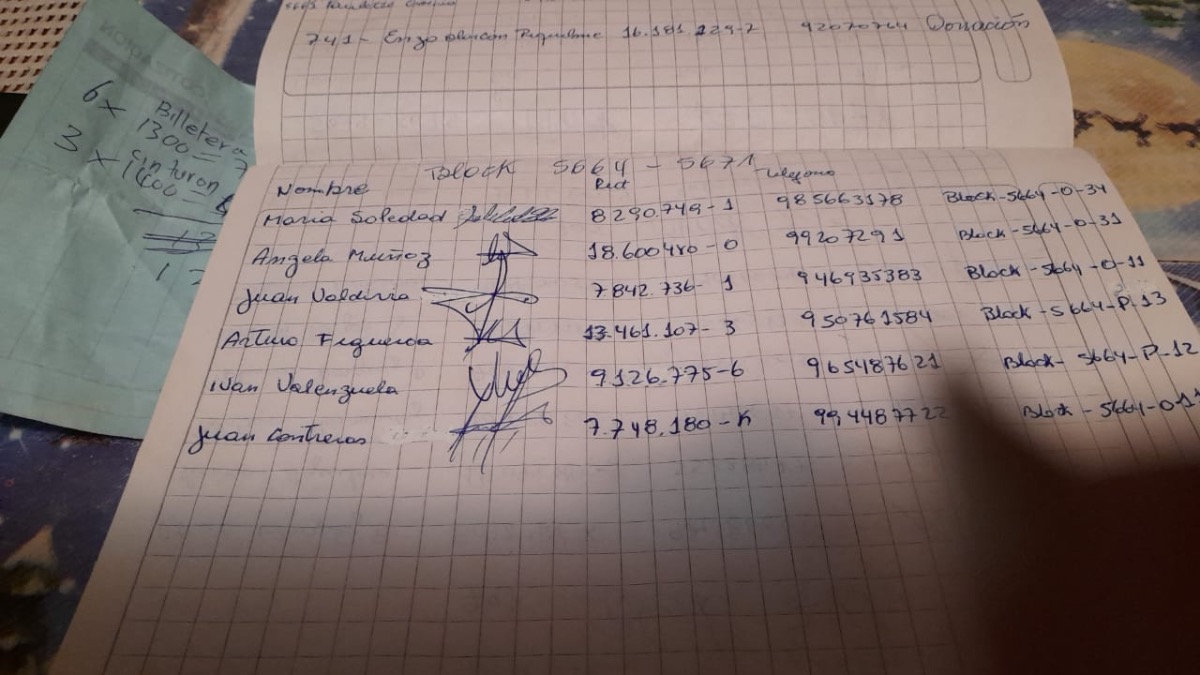 741- Enzo 16.181.229-7 92070764 Donación
6 x Billetera
1300 = 7
3 x Cinturon
1400 =
Block 5664 - 5671
Nombre Rut Telefono
Maria Soledad 8290.749-1 985663178 Block-5664-O-34
Angela Muñoz 18.600480-0 99207291 Block-5664-O-31
Juan Valdivia 7842.736- 1 946935383 Block-5664-O-11
Arturo Figueroa 13.461.107-3 950761584 Block-5664-P-13
Ivan Valenzuela 9126.775-6 965487621 Block-5664-P-12
Juan Contreras 7.748.180-K 994487722 Block-5664-O-11